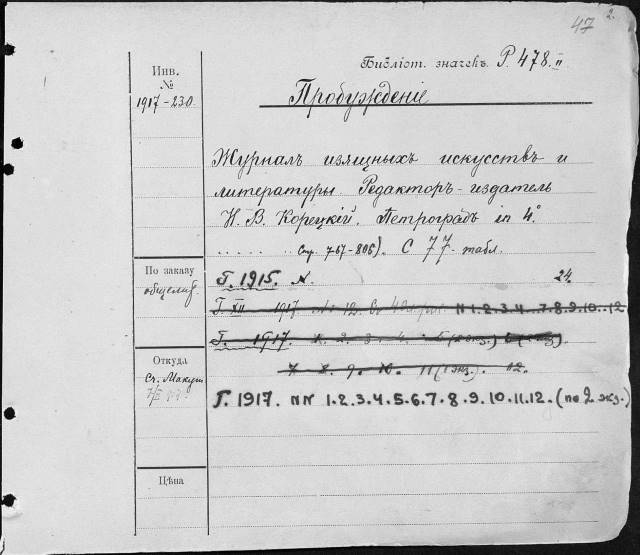 47 2.
Библіот. значекъ. Р. 478.II
Инв.
№
1917-230
Пробужденіе
Журналъ изящныхъ искусствъ и
литературы. Редакторъ-издатель
Н. В. Корецкій. Петроградъ in 4°.
. . . . . . Стр. 767-806). С 77 табл.
По заказу
общелит.
Г. 1915. N. 24.
Г. XII 1917. № 12. N 1.2.3.4....7.8.9.10...12
Г. 1917. 1. 2. 3. 4. 5 (2 экз.) 6 (экз).
7. 8. 9. 10. 11 (1 экз.). 12.
Откуда
Сч. Макуш
Г. 1917. NN 1.2.3.4.5.6.7.8.9.10.11.12. (по 2 экз.)
Цѣна